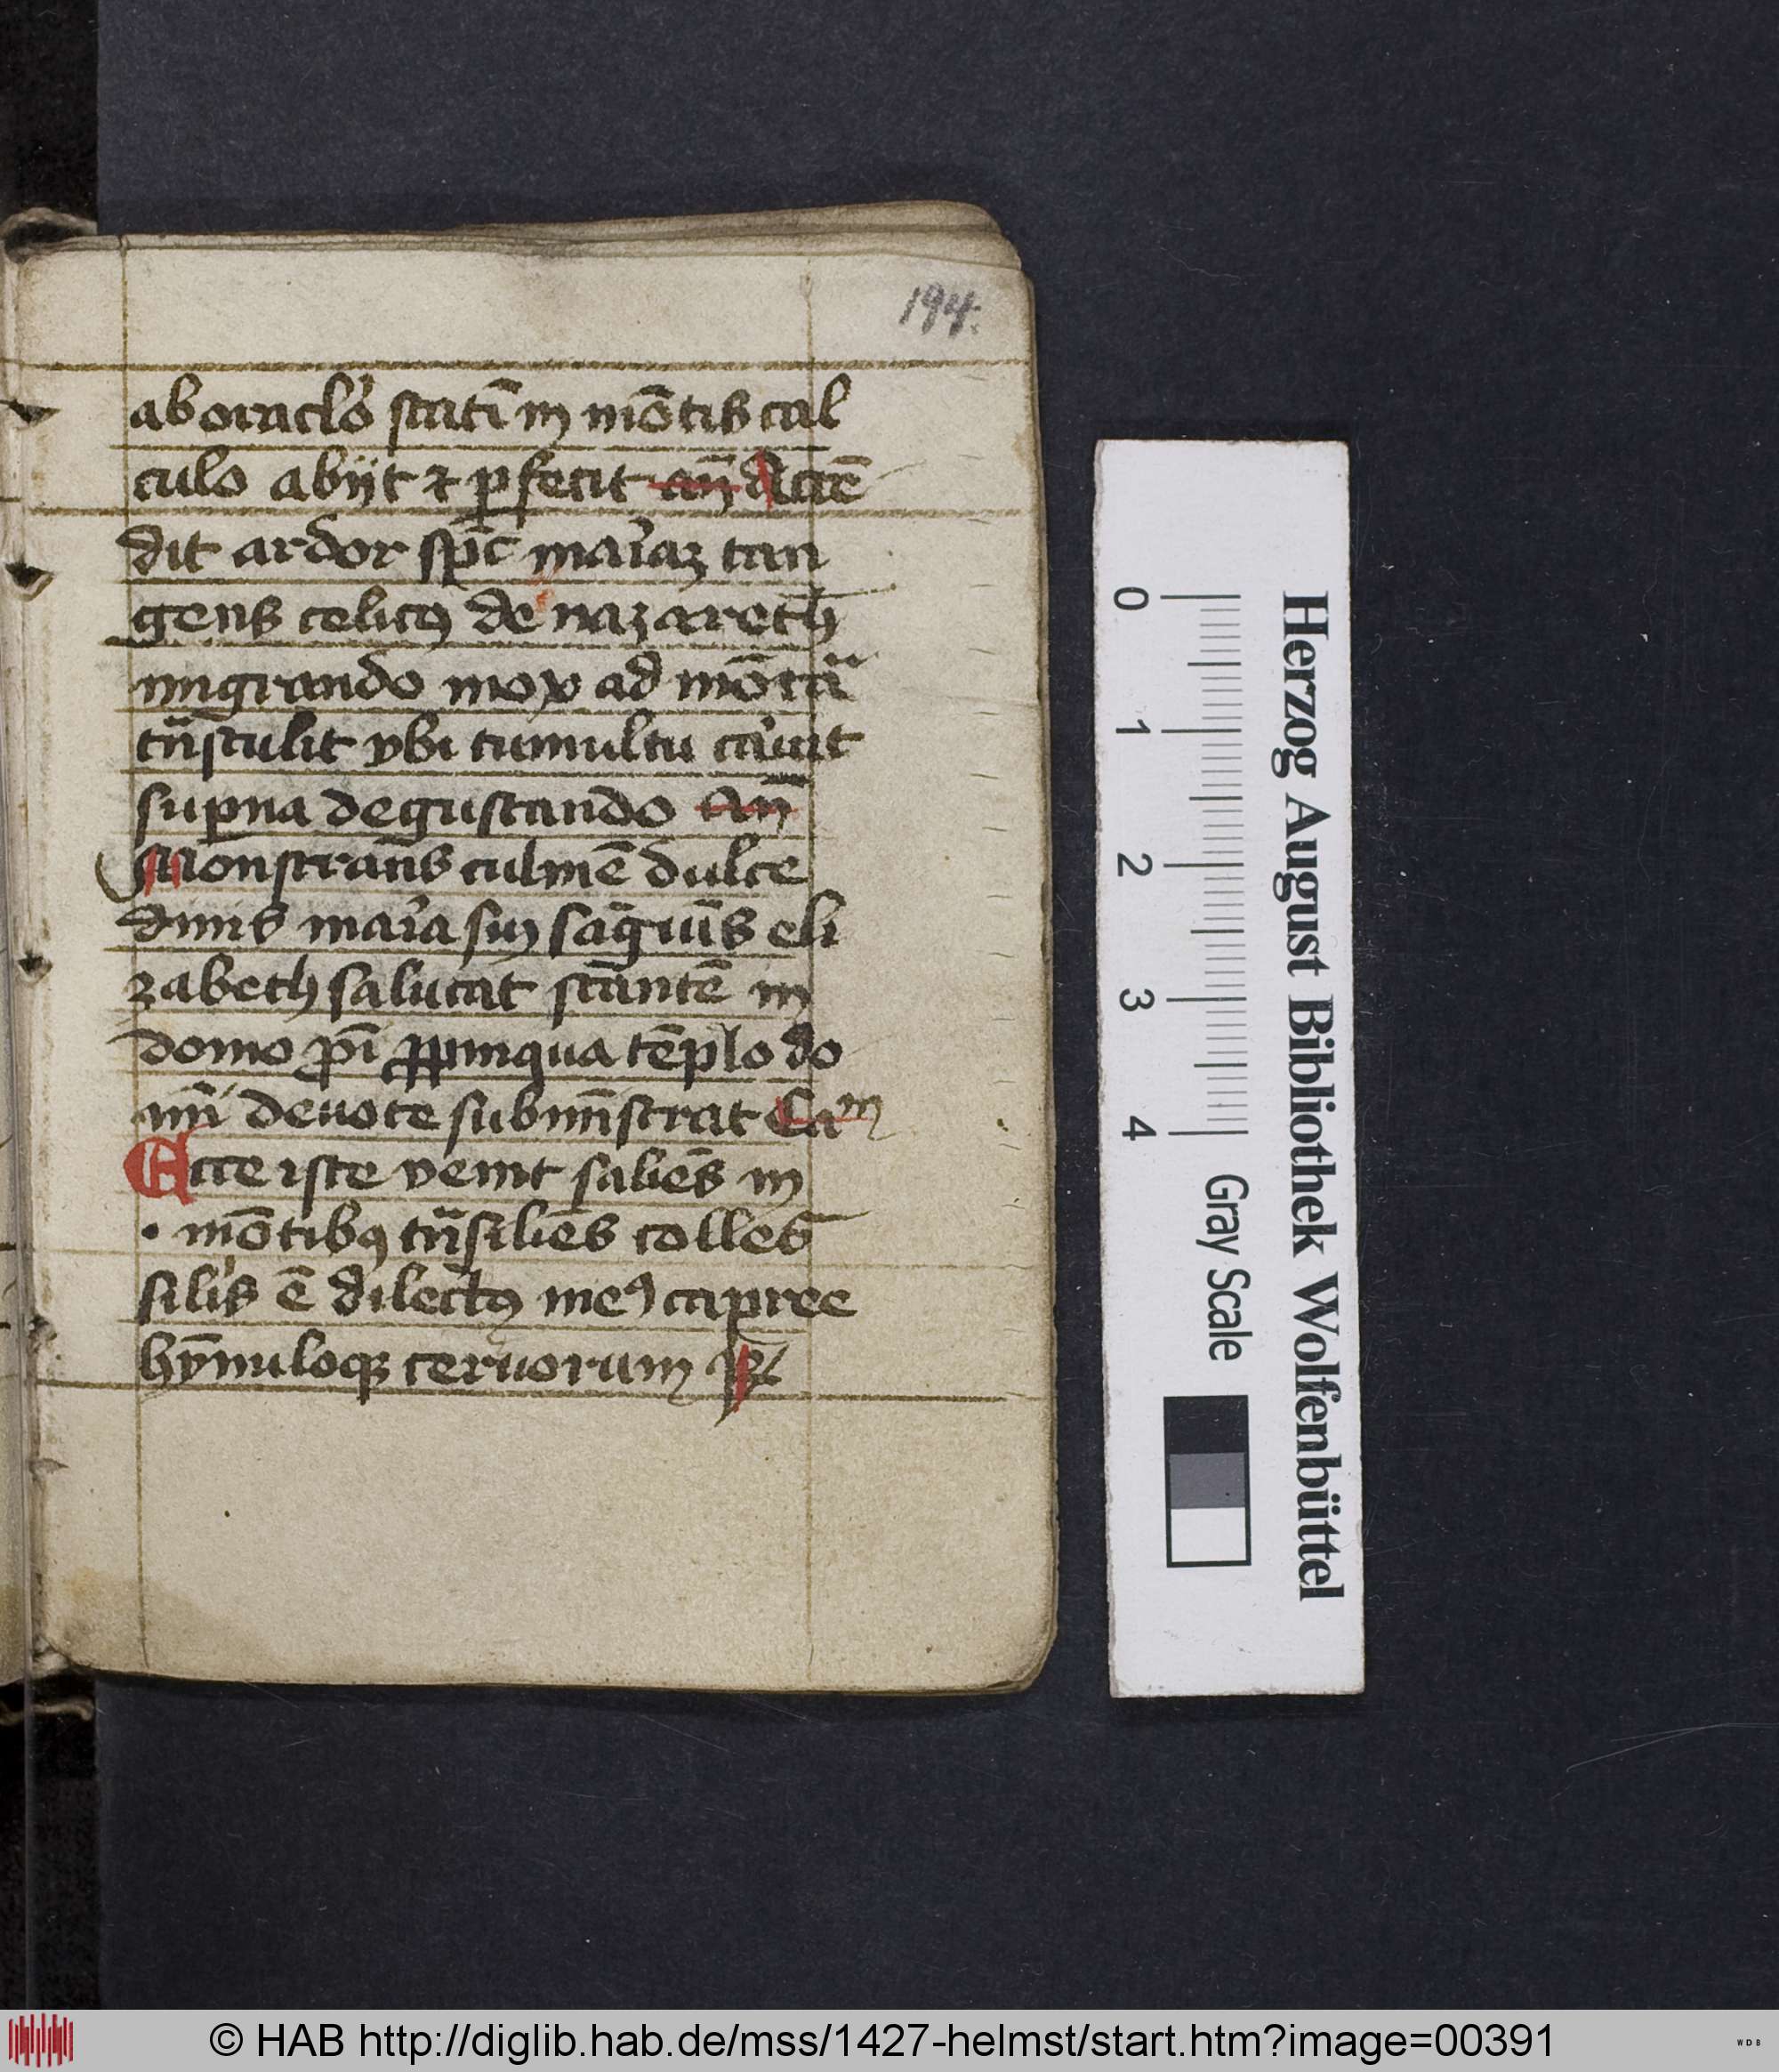 194.
ab oraclo statī in mōtis cal
culo abijt ⁊ ꝑfecit an̄ Accē
dit ardor spc̄ mariaꝫ tan
gens celicꝰ de nazareth
migrando mox ad mōtā
tn̄stulit vbi tumultu caruit
suꝑna degustando An̄
Monstrans culmē dulce
dinis maria sui sāguis eli
zabeth salutat stantē in
domo ꝓi ꝓpinqua tēplo do
mī deuote submīstrat Ca
Ecce iste venit saliēs in
montibꝰ tn̄siliēs colles
silis ē dilectꝰ meꝰ capree
hynuloqꝫ ceruorum
Herzog August Bibliothek Wolfenbüttel
0 1 2 3 4 Gray Scale
© HAB http://diglib.hab.de/mss/1427-helmst/start.htm?image=00391
WDB